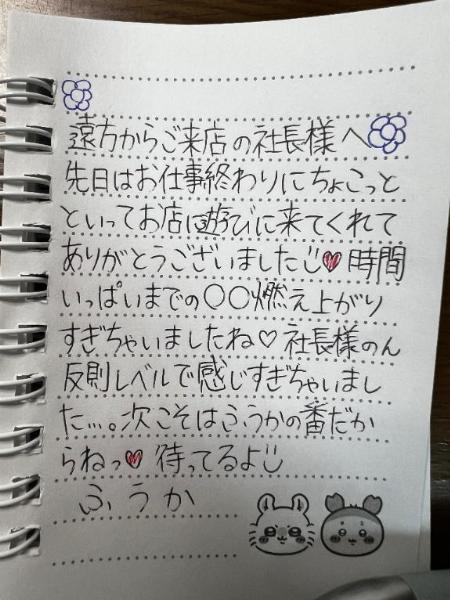 遠方からご来店の社長様へ
先日はお仕事終わりにちょこっと
といってお店に遊びに来てくれて
ありがとうございました♥時間
いっぱいまでの〇〇燃え上がり
すぎちゃいましたね♡社長様のん
反則レベルで感じすぎちゃいまし
た...。次こそはふうかの番だか
らねっ♥待ってるよ
ふうか